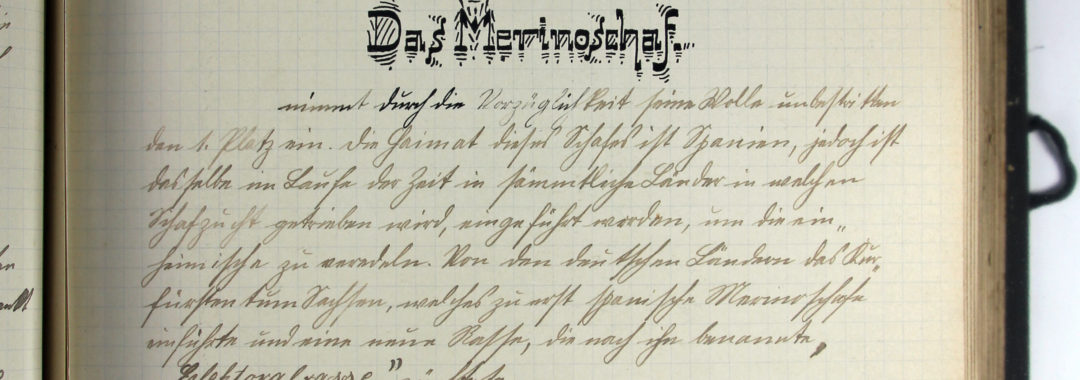 Das Merinoschaf.
nimmt durch die Vorzüglichkeit seine Wolle unbestritten
den 1. Platz ein. Die Heimat dieses Schafes ist Spanien, jedoch ist
dasselbe im Laufe der Zeit in sämmtliche Länder in welchen
Schafzucht getrieben wird, eingeführt worden, um die ein„
heimische zu veredeln. Von den deutschen Ländern das Kur„
fürstentum Sachsen, welches zu erst spanische Merinoschafe
einführte und eine neue Rasse, die nach ihr benannte „
Elektoralrasse"